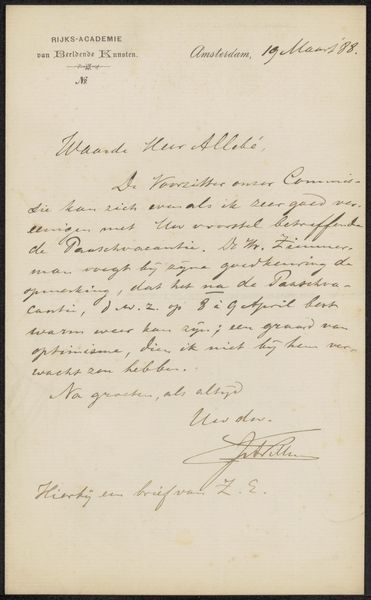 RIJKS-ACADEMIE
van Beeldende Kunsten.
No.
Amsterdam, 19 Maart '88.
Waarde Heer Allebé,
De Voorzitter onzer Commis-
sie kan zich evenals ik zeer goed ver-
eenigen met Uw voorstel betreffende
de Paaschvacantie. De Hr. Zimmer-
man voegt bij zijne goedkeuring de
opmerking, dat het na de Paaschva-
cantie, d.w.z. op 8 à 9 April best
warm weer kan zijn; een graad van
optimisme, dien ik niet bij hem ver-
wacht zou hebben.
Na groeten, als altijd
Uw dw.
Hierbij een brief van Z. E.